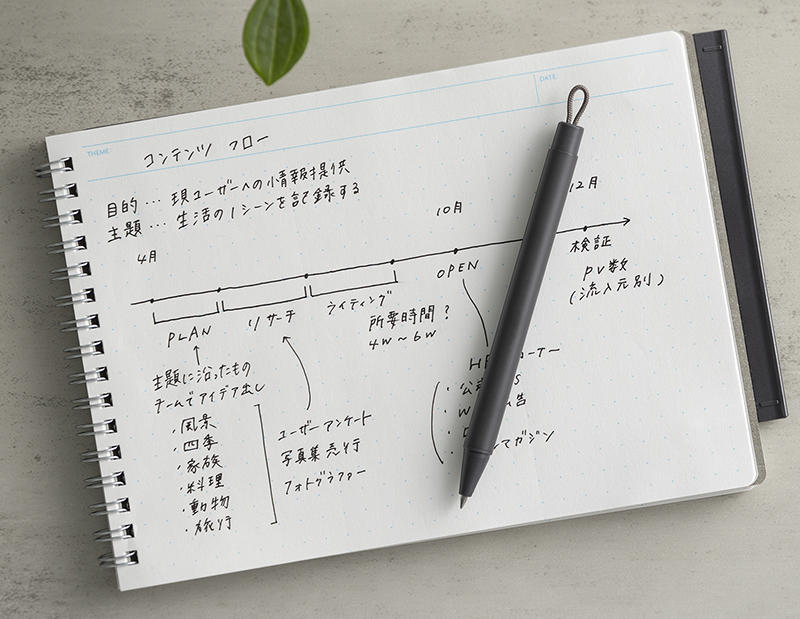 THEME:
DATE:
コンテンツ フロー
目的… 現ユーザーへの情報提供
主題… 生活の1シーンを記録する
4月
10月
12月
PLAN
リサーチ
ライティング
OPEN
検証
PV数
(流入元別)
所要時間?
4W〜6W
主題に沿ったもの
チームでアイデア出し
・風景
・四季
・家族
・料理
・動物
・旅行
ユーザーアンケート
写真集売行
フォトグラファー
コーナー
・公
告
マガジン